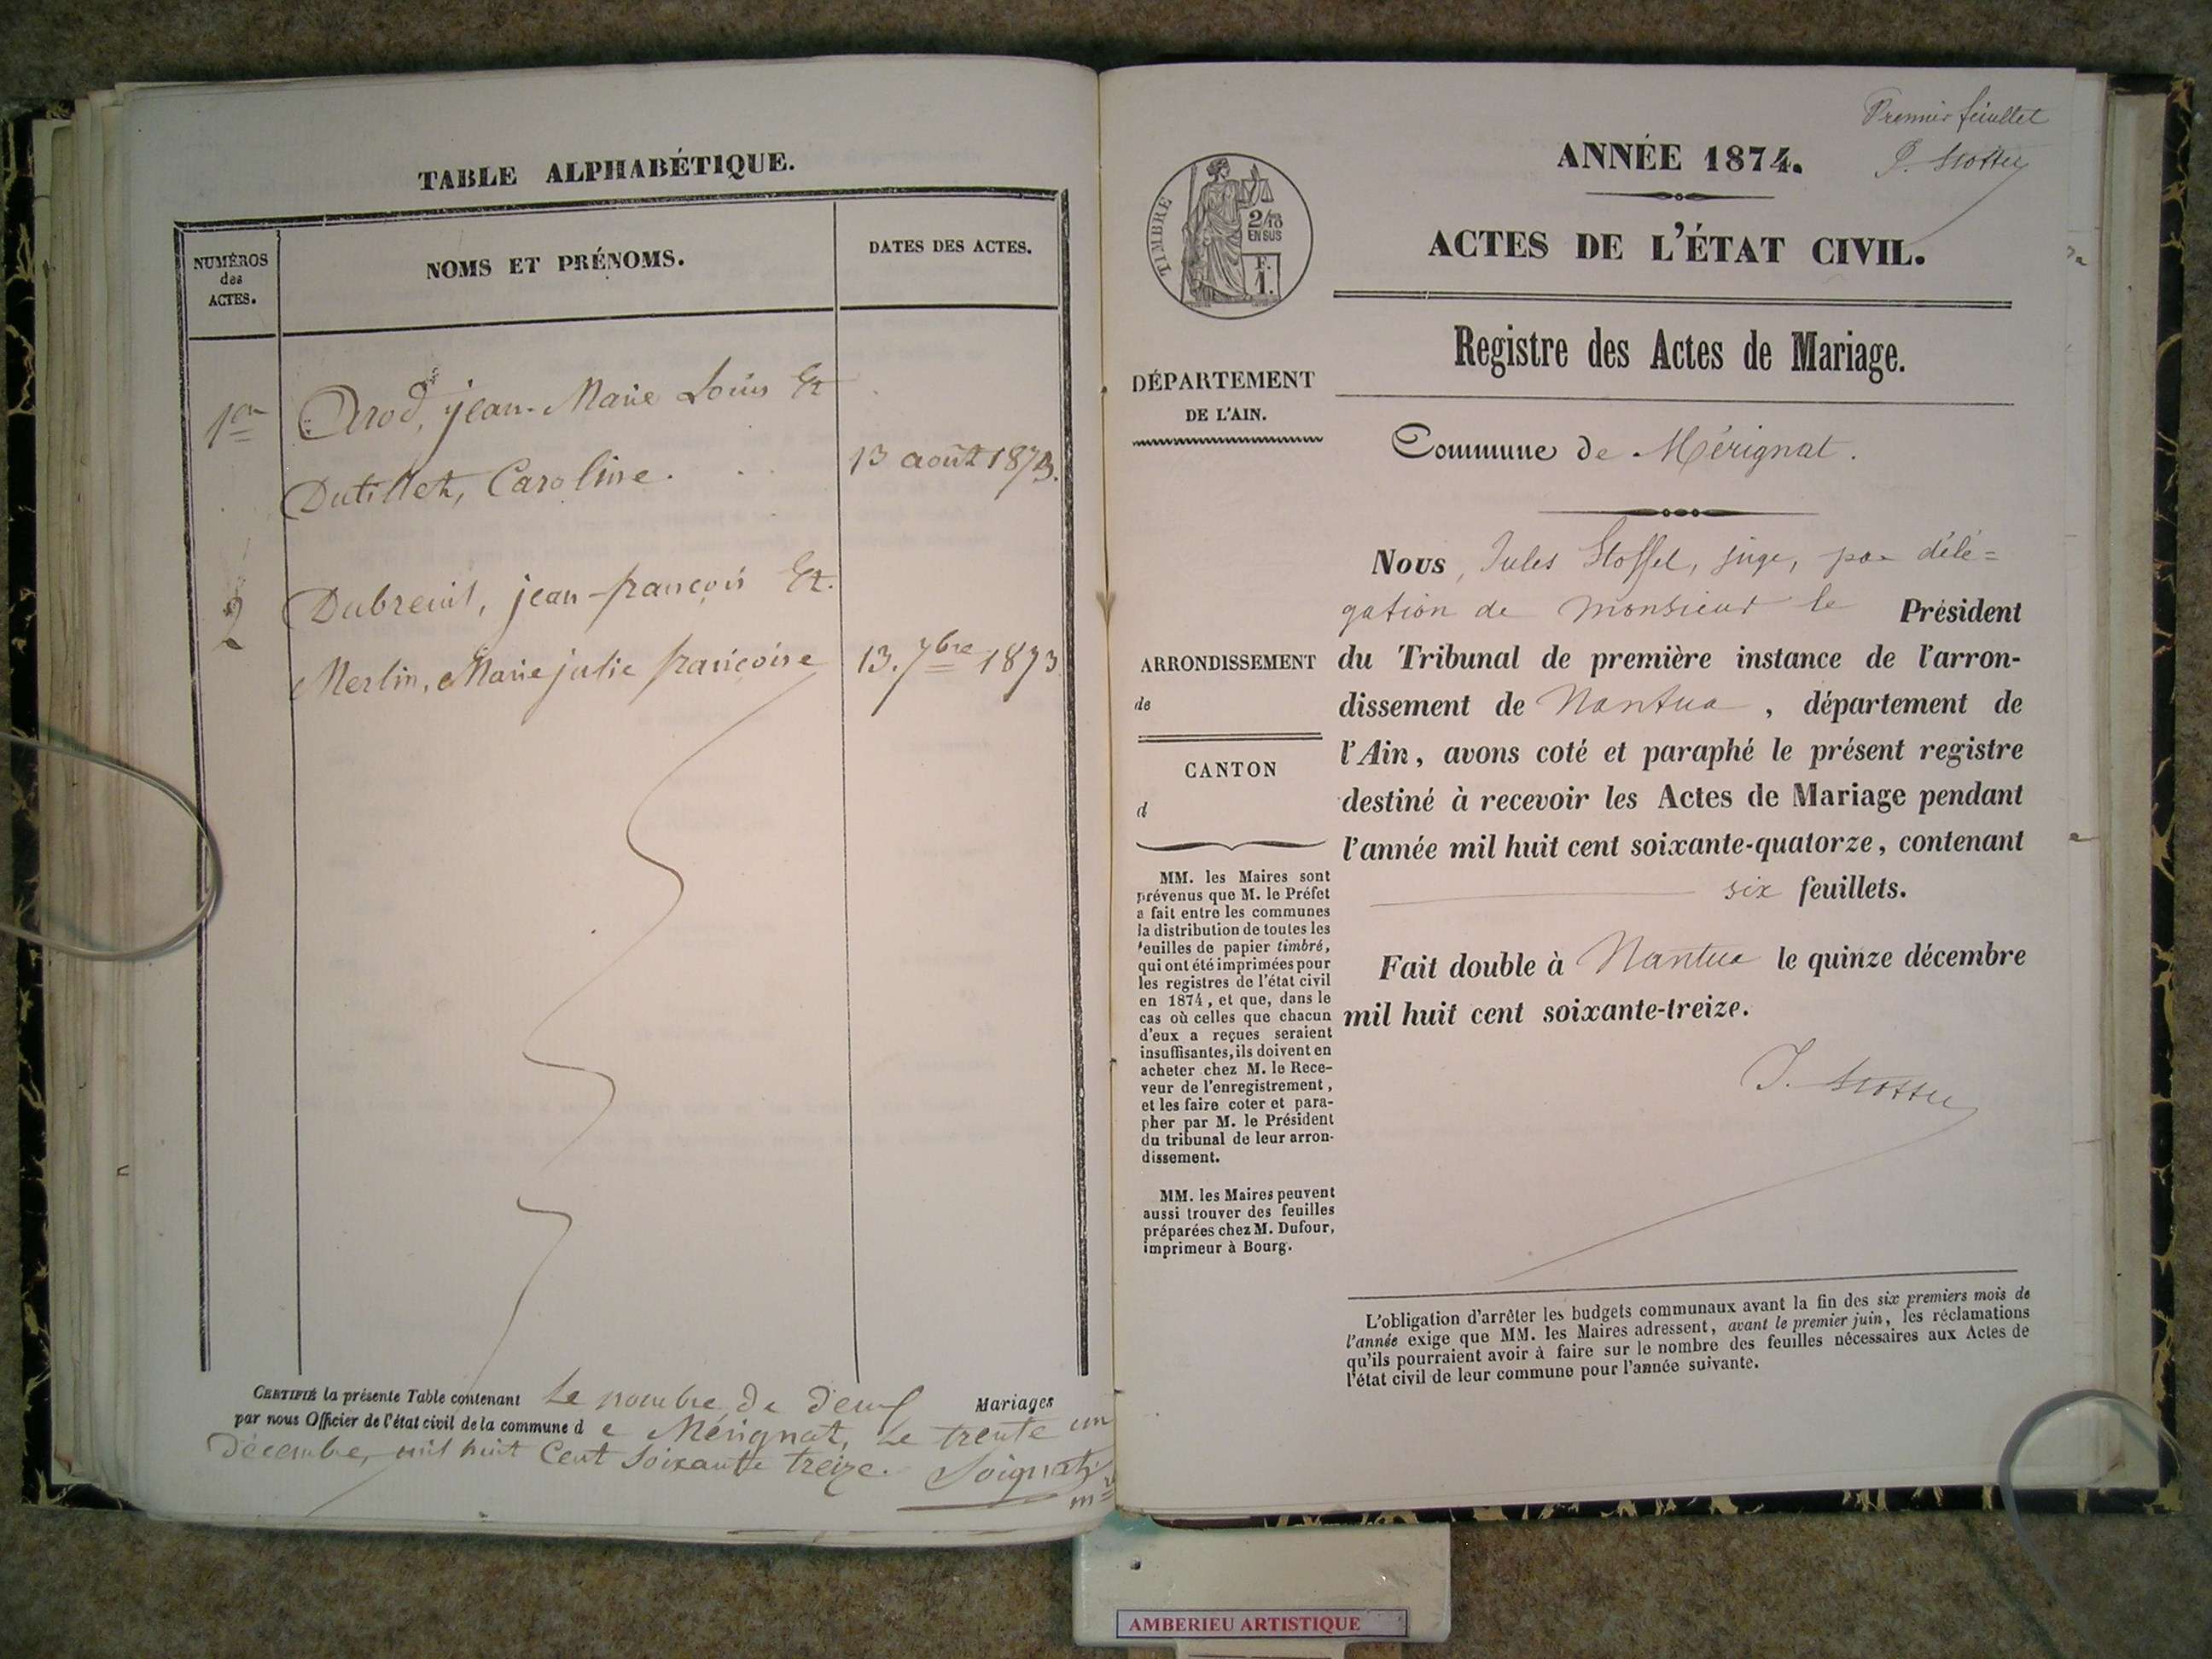 TABLE ALPHABÉTIQUE.
NUMÉROS
des
ACTES.
NOMS ET PRÉNOMS.
DATES DES ACTES.
1er
Arod, jean-Marie Louis Et
Dutillet, Caroline.
13 août 1873.
2
Dubreuil, jean-françois Et.
Merlin, Marie julie françoise
13. 7bre 1873
CERTIFIÉ la présente Table contenant Le nombre de deux Mariages
par nous Officier de l'état civil de la commune de Mérignat, Le trente un
Décembre, mil huit Cent Soixante treize.
Premier feuillet
ANNÉE 1874.
TIMBRE
2/10
EN SUS
F.
1.
ACTES DE L'ÉTAT CIVIL.
Registre des Actes de Mariage.
DÉPARTEMENT
DE L'AIN.
Commune de Mérignat.
Nous, Jules Stoffel, juge, par délé=
gation de monsieur le Président
du Tribunal de première instance de l'arron-
dissement de Nantua, département de
l'Ain, avons coté et paraphé le présent registre
destiné à recevoir les Actes de Mariage pendant
l'année mil huit cent soixante-quatorze, contenant
six feuillets.
Fait double à Nantua le quinze décembre
mil huit cent soixante-treize.
ARRONDISSEMENT
de
CANTON
d
MM. les Maires sont
prévenus que M. le Préfet
a fait entre les communes
la distribution de toutes les
feuilles de papier timbré,
qui ont été imprimées pour
les registres de l'état civil
en 1874, et que, dans le
cas où celles que chacun
d'eux a reçues seraient
insuffisantes, ils doivent en
acheter chez M. le Rece-
veur de l'enregistrement,
et les faire coter et para-
pher par M. le Président
du tribunal de leur arron-
dissement.
MM. les Maires peuvent
aussi trouver des feuilles
préparées chez M. Dufour,
imprimeur à Bourg.
L'obligation d'arrêter les budgets communaux avant la fin des six premiers mois de
l'année exige que MM. les Maires adressent, avant le premier juin, les réclamations
qu'ils pourraient avoir à faire sur le nombre des feuilles nécessaires aux Actes de
l'état civil de leur commune pour l'année suivante.
AMBERIEU ARTISTIQUE